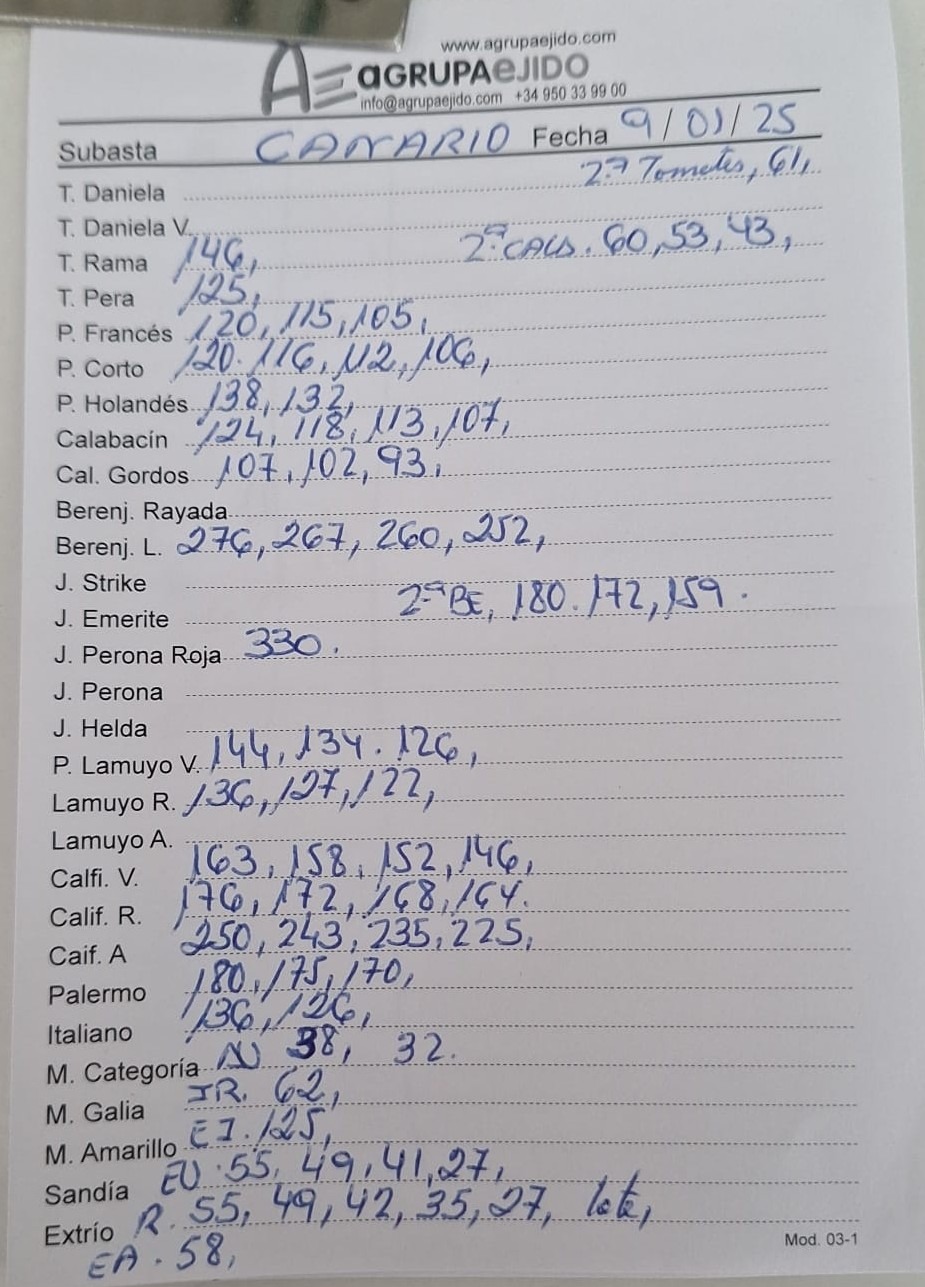 www.agrupaejido.com
AGRUPAEJIDO
info@agrupaejido.com +34 950 33 99 00
Subasta CANARIO Fecha 9/01/25
T. Daniela 2ª Tomates, 61,
T. Daniela V.
T. Rama 146, 2ª CALS. 60, 53, 43,
T. Pera 125,
P. Francés 120, 115, 105,
P. Corto 120. 116, 112, 106,
P. Holandés 138, 132,
Calabacín 124, 118, 113, 107,
Cal. Gordos 107, 102, 93,
Berenj. Rayada
Berenj. L. 276, 267, 260, 252,
J. Strike
J. Emerite 2ª BE, 180. 172, 159.
J. Perona Roja 330.
J. Perona
J. Helda
P. Lamuyo V. 144, 134. 126,
Lamuyo R. 136, 127, 122,
Lamuyo A.
Calfi. V. 163, 158, 152, 146,
Calif. R. 176, 172, 168, 164.
Caif. A 250, 243, 235, 225,
Palermo 180, 175, 170,
Italiano 136, 126,
M. Categoría 38, 32.
M. Galia IR. 62,
M. Amarillo EI. 125,
Sandía EU. 55, 49, 41, 27,
Extrío R. 55, 49, 42, 35, 27, lote,
EA. 58,
Mod. 03-1